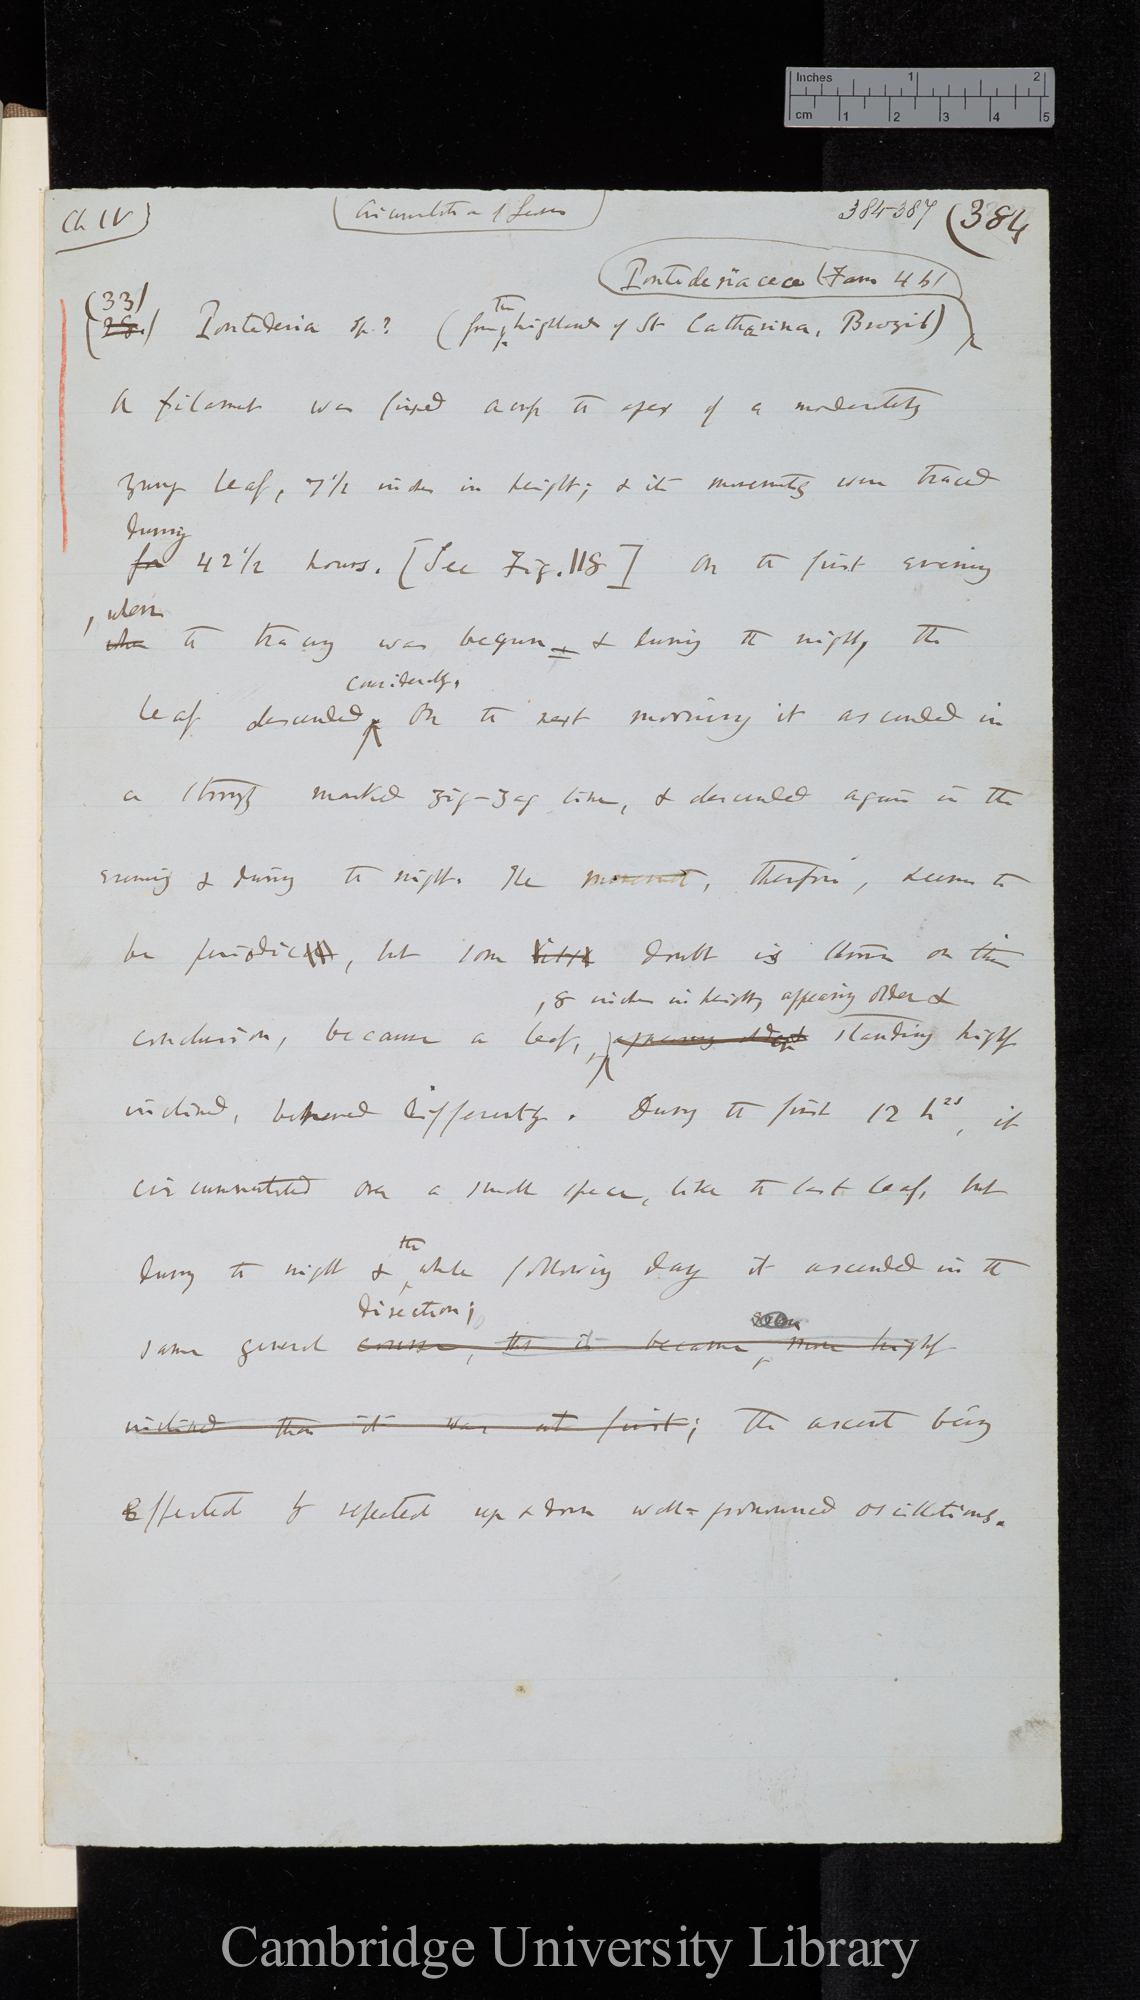 Inches 1 2
cm 1 2 3 4 5
Ch IV
Circumnutation of Leaves
384-387 (384
Pontederiaceae (Fam 46)
(33)
(28.) Pontederia sp.? (from the highlands of St Catharina, Brazil)
A filament was fixed across the apex of a moderately
young leaf, 7 1/2 inches in height; & its movements were traced
during
for 42 1/2 hours. [See Fig. 118] On the first evening
, when
when the tracing was begun & during the night, the
considerably.
leaf descended On the next morning it ascended in
a strongly marked zig-zag line, & descended again in the
evening & during the night. The movement, therefore, seems to
be periodic, but some little doubt is thrown on this
, 8 inches in height, appearing older &
conclusion, because a leaf, appearing older standing highly
inclined, behaved differently. During the first 12 hrs, it
circumnutated over a small space, like the last leaf, but
during the night & the whole following day it ascended in the
direction;
same general course, thus it became, more highly
inclined than it was at first; the ascent being
effected by repeated up & down well-pronounced oscillations.
Cambridge University Library